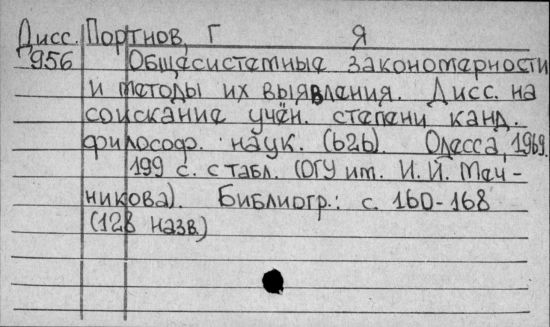 Дисс. Портнов, Г Я
956 Общесистемные закономерности
и методы их выявления. Дисс. на
соискание учён. степени канд.
философ. наук. (626). Одесса, 1969.
199 с. с табл. (ОГУ им. И. И. Меч-
никова). Библиогр.: с. 160-168
(128 назв.)